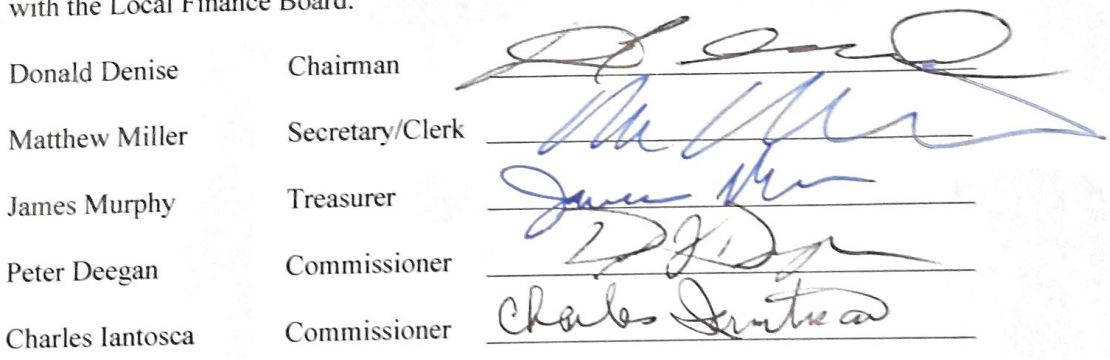 with the Local Finance Board.
Donald Denise Chairman
Matthew Miller Secretary/Clerk
James Murphy Treasurer James
Peter Deegan Commissioner
Charles Iantosca Commissioner Charles Iantosca